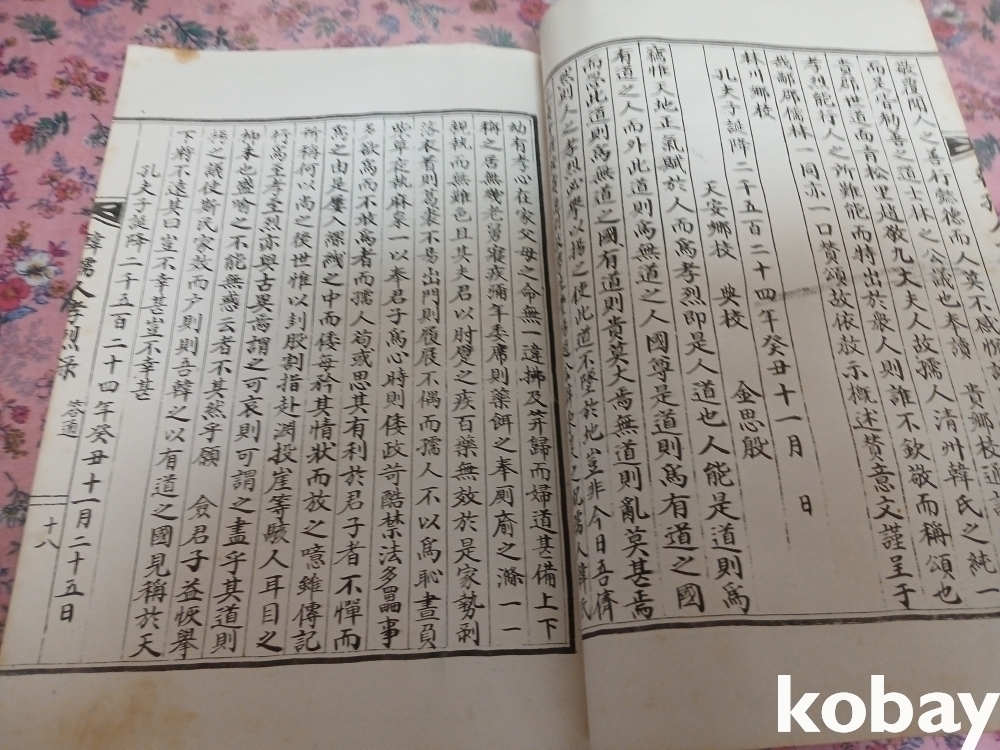 敬覆聞人之善行懿德而人莫不感
而是官勸善之道士林之公議也本讀 貴鄉校通
貴郡世道面青松里趙敬九大夫人故孺人淸州韓氏之純一
孝烈能行人之所難能而特出於衆人則誰不欽敬而稱頌也
哉鄙郡儒林一同亦一口贊頌故依放示概述贊意文謹呈于
林川鄉校
孔夫子誕降二千五百二十四年癸丑十一月 日
天安鄉校 典校 金思殷
竊惟天地正氣賦於人而爲孝烈卽是人道也人能是道則爲
有道之人而外此道則爲無道之人國尊是道則爲有道之國
而忽此道則爲無道之國有道則貴莫大焉無道則亂莫甚焉
然則人之孝烈必擧以揚之使此道不墜於地豈非今日吾儕
孺人韓氏
幼有孝心在家父母之命無一違拂及笄歸而婦道甚備上下
稱之居無幾老舅寢疾彌年委席則藥餌之奉厠腧之滌一一
親執而無難色且其夫君以肘臂之疾百藥無效於是家勢剥
落衣着則葛裘不易出門則履屐不偶而孺人不以爲恥晝員
柴草夜執麻枲一以奉君子爲心時則倭政苛酷禁法多畾事
多欲爲而不敢爲者而孺人苟或思其有利於君子者不憚而
爲之由是屢入深緘之中而倭每矜其情狀而放之噫雖傳記
所稱何以尚之後世惟以刲股割指赴淵投崖等駭人耳目之
行爲至孝至烈亦與古異焉謂之可哀則可謂之盡乎其道則
抑末也盛喩之不能無惑云者不其然乎願 僉君子益恢擧
揚之議使斯民家效而戶則則吾韓之以有道之國見稱於天
下將不遠其曰豈不幸甚豈不幸甚
孔夫子誕降二千五百二十四年癸丑十一月二十五日
韓孺人孝烈录 答通 十八
kobay